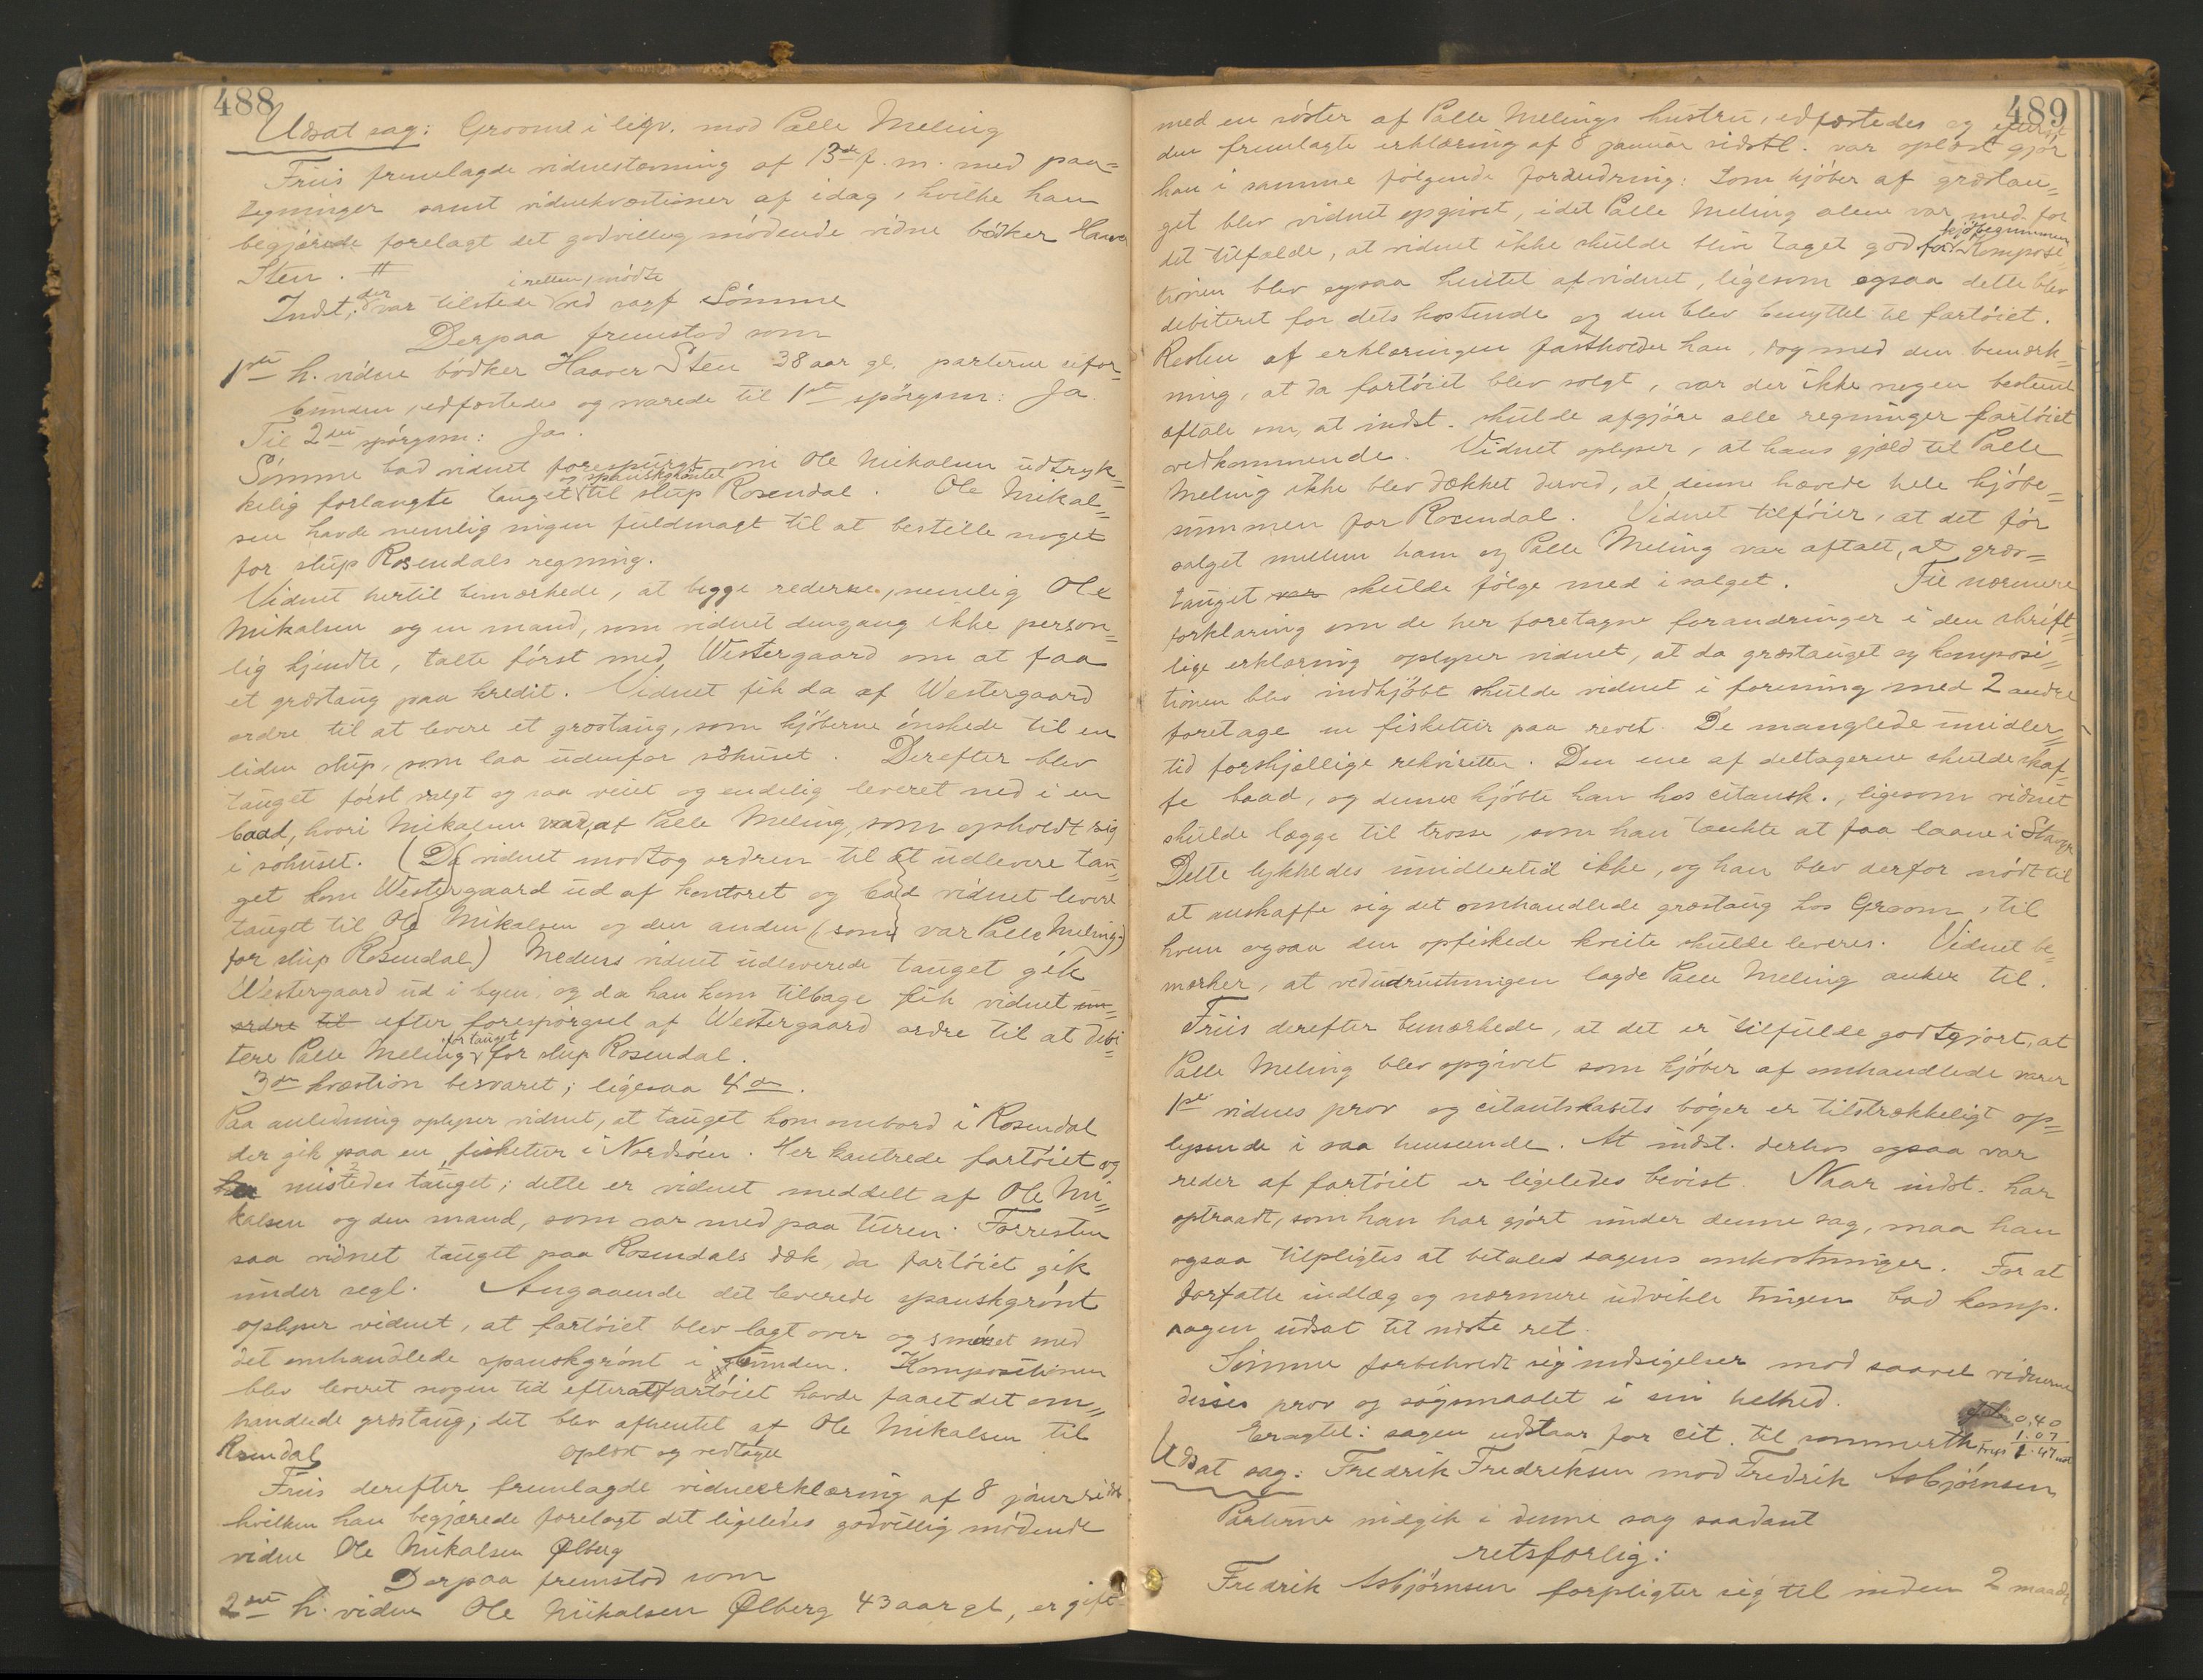 488
Udsat sag: Groomd i liqv. mod Palle Meling
Friis fremlagde vidnestævning af 13de f.m. med paa-
tegninger samt vidnekvæstioner af idag, hvilke han
begjærede forelagt det godvillig mödende vidne bödker Haaver
Sten. #
i retten, mödte
Indst. der var tilstede ved sagf. Sömme
Derpaa fremstod som
1ste h. vidne bödker Haaver Sten 38 aar gl. parterne ufor-
bunden, edfæstedes og svarede til 1ste spörgsm: Ja.
Til 2det spörgsm: Ja.
Sömme bad vidnet forespurgt om Ole Mikalsen udtryk-
og spanskgröntet
kelig forlangte tauget til slup Rosendal. Ole Mikal-
sen havde nemlig ingen fuldmagt til at bestille noget
for slup Rosendals regning.
Vidnet hertil bemærkede, at begge rederne, nemlig Ole
Mikalsen og en mand, som vidnet dengang ikke person-
lig kjendte, talte först med Westergaard om at faa
et græstaug paa kredit. Vidnet fik da af Westergaard
ordre til at levere et græstaug, som kjöberne önskede til en
liden slup, som laa udenfor söhuset. Derefter blev
tauget först valgt og saa veiet og endelig leveret ned i en
baad, hvori Mikalsen var, af Palle Meling, som opholdt sig
i söhuset. (Da vidnet modtog ordren til at udlevere tau-
get kom Westergaard ud af kontoret og bad vidnet levere
tauget til Ole Mikalsen og den anden (som var Palle Meling)
for slup Rosendal) Medens vidnet udleverede tauget gik
Westergaard ud i byen, og da han kom tilbage fik vidnet
ordre til efter forespörgsel af Westergaard ordre til at debi-
for tauget
tere Palle Meling for slup Rosendal.
3die kvæstion besvaret; ligesaa 4de.
Paa anledning oplyser vidnet, at tauget kom ombord i Rosendal
der gik paa en fisketur i Nordsöen. Her kantrede fartöiet og
mistedes tauget; dette er vidnet meddelt af Ole Mi-
kalsen og den mand, som var med paa turen. Forresten
saa vidnet tauget paa Rosendals dæk, da fartöiet gik
under segl. Angaaende det leverede spanskgrönt
oplyser vidnet, at fartöiet blev lagt over og smöret med
det omhandlede spanskgrönt i bunden. Kompositionen
blev leveret nogen tid efterat fartöiet havde faaet det om-
handlede græstaug; det blev afhentet af Ole Mikalsen til
Rosendal
Oplæst og vedtaget
Friis derefter fremlagde vidneerklæring af 8 januar sidstl.
hvilken han begjærede forelagt det ligeledes godvillig mödende
vidne Ole Mikalsen Ølberg
Derpaa fremstod som
2det h. vidne Ole Mikalsen Ølberg 43 aar gl, er gift
489
med en söster af Palle Melings hustru, edfæstedes og efterat
den fremlagte erklæring af 8 januar sidstl. var oplæst gjör
han i samme fölgende forandring: Som kjöber af græstau-
get blev vidnet opgivet, idet Palle Meling alene var med for
kjöbesummen
det tilfælde, at vidnet ikke skulde blive taget god for Komposi-
tionen blev ogsaa hentet af vidnet, ligesom ogsaa dette blev
debiteret for dets kostende og den blev benyttet til fartöiet.
Resten af erklæringen fastholder han, dog med den bemærk-
ning, at da fartöiet blev solgt, var der ikke nogen bestemt
aftale om, at indst. skulde afgjöre alle regninger fartöiet
vedkommende. Vidnet oplyser, at hans gjæld til Palle
Meling ikke blev dækket derved, at denne hævede hele kjöbe-
summen for Rosendal. Vidnet tilföier, at det för
salget mellem ham og Palle Meling var aftalt, at græs-
tauget var skulde fölge med i salget. Til nærmere
forklaring om de her foretagne forandringer i den skrift-
lige erklæring oplyser vidnet, at da græstauget og komposi-
tionen blev indkjöbt skulde vidnet i forening med 2 andre
foretage en fisketur paa revet. De manglede imidler-
tid forskjellige rekvisiter. Den ene af deltagerne skulde skaf-
fe baad, og denne kjöbte han hos citantsk., ligesom vidnet
skulde lægge til trosse, som han tænkte at faa laane i Stavgr
Dette lykkedes imidlertid ikke, og han blev derfor nödt til
at anskaffe sig det omhandlede græstaug hos Groom, til
hvem ogsaa den opfiskede kveite skulde leveres. Vidnet be-
mærker, at ved udrustningen lagde Palle Meling anker til.
Friis derefter bemærkede, at det er tilfulde godtgjort, at
Palle Meling blev opgivet som kjöber af omhandlede varer
1ste vidnes prov og citantskabets böger er tilstrækkeligt op-
lysende i saa henseende. At indst. derhos ogsaa var
reder af fartöiet er ligeledes bevist. Naar indst. har
optraadt, som han har gjört under denne sag, maa han
ogsaa tilpligtes at betale sagens omkostninger. For at
forfatte indlæg og nærmere udvikle tingen bad komp.
sagen udsat til næste ret.
Sömme forbeholdt sig indsigelser mod saavel vidnerne
disses prov og sögsmaalet i sin helhed.
Eragtet: sagen udstaar for cit. til sommerth.
0,40
1.07
1.47
Udsat sag: Fredrik Fredriksen mod Fredrik Asbjörnsen
Parterne indgik i denne sag saadant
retsforlig:
Fredrik Asbjörnsen forpligter sig til inden 2 maaneder